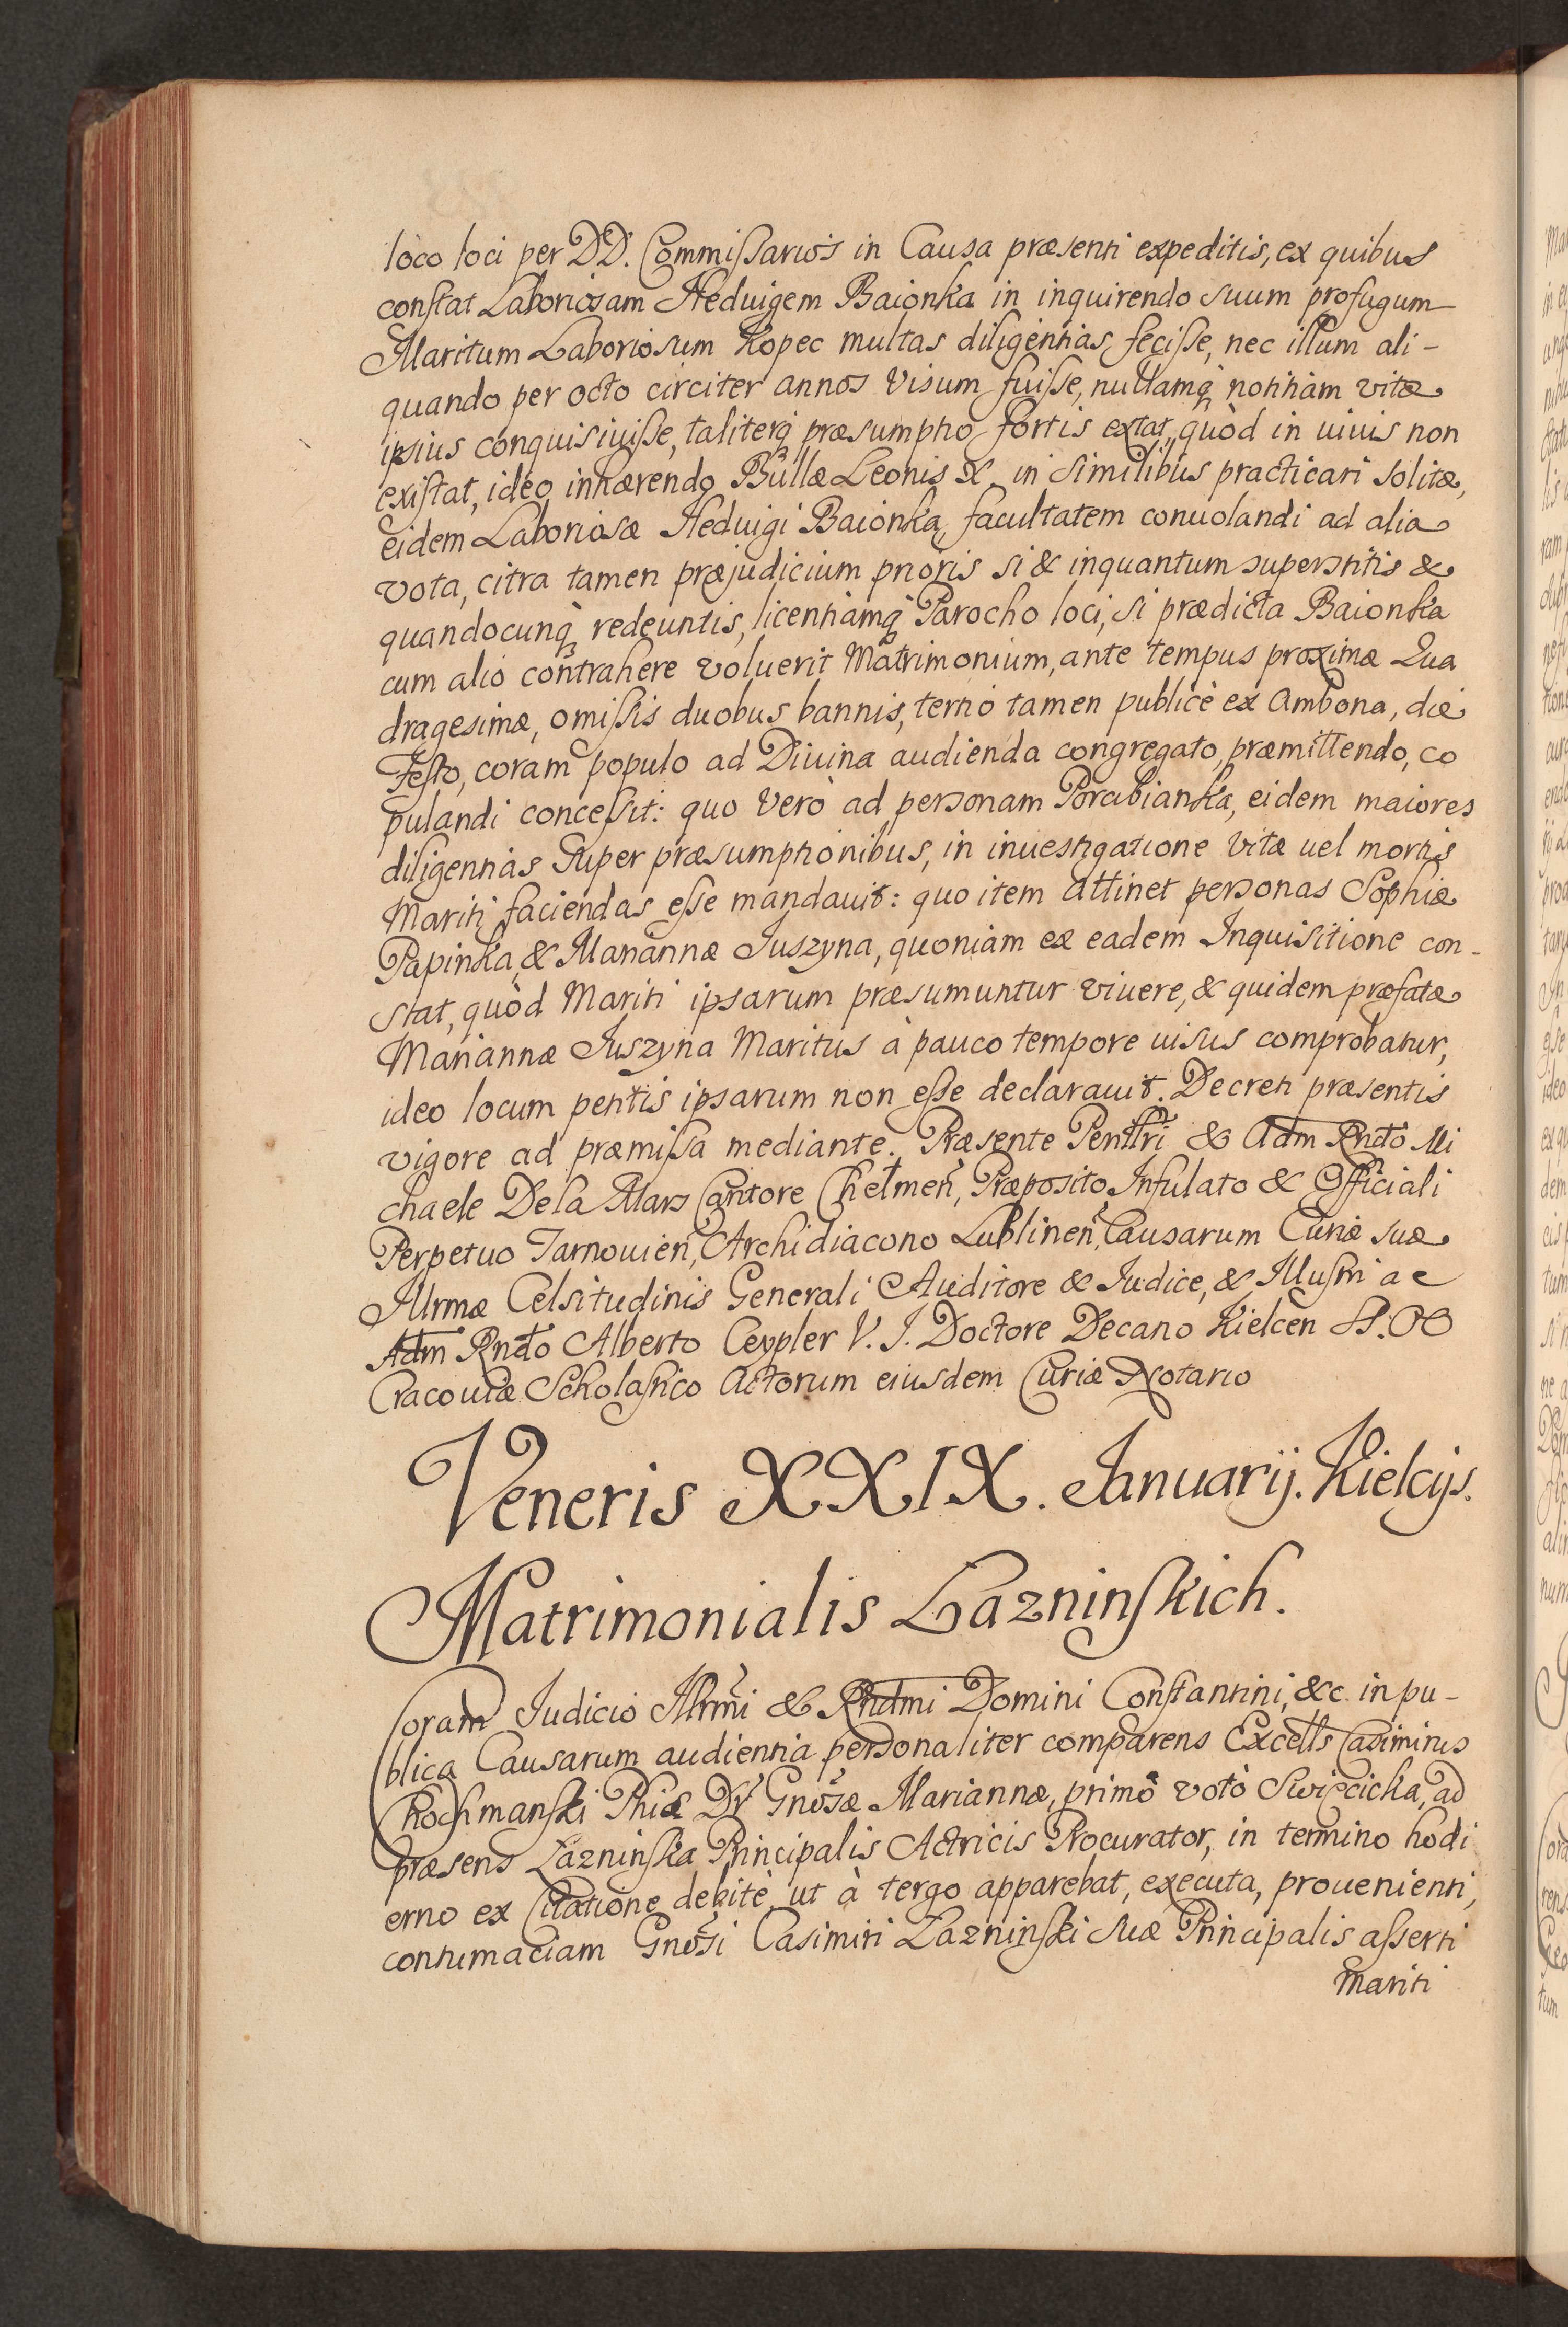 loco loci per DD. Commissarios in Causa præsenti expeditis, ex quibus
constat Laboriosam Heduigem Baionka in inquirendo suum profugum
Maritum Laboriosum Kopec multas diligentias fecisse, nec illum ali-
quando per octo circiter annos visum fuisse, nullamq́ notitiam vitæ
ipsius conquisiuisse, taliterq́ præsumptio fortis extat, quòd in uiuis non
existat, ideo inhærendo Bullæ Leonis X. in similibus practicari solitæ,
eidem Laboriosæ Heduigi Baionka, facultatem conuolandi ad alia
vota, citra tamen præjudicium prioris si & inquantum superstitis &
quandocunq́ redeuntis, licentiamq́ Parocho loci, si prædicta Baionka
cum alio contrahere voluerit Matrimonium, ante tempus proximæ Qua
dragesimæ, omissis duobus bannis, tertio tamen publicè ex Ambona, die
Festo, coram populo ad Diuina audienda congregato, præmittendo, co
pulandi concessit: quo verò ad personam Porabianka, eidem maiores
diligentias super præsumptionibus, in inuestigatione vitæ uel mortis
Mariti faciendas esse mandauit: quo item attinet personas Sophiæ
Papinka, & Mariannæ Juszyna, quoniam ex eadem Inquisitione con-
stat, quòd Mariti ipsarum præsumuntur viuere, & quidem præfatæ
Mariannæ Juszyna Maritus à pauco tempore uisus comprobatur,
ideo locum petitis ipsarum non esse declarauit. Decreti præsentis
vigore ad præmissa mediante. Præsente Penllri & Adm Rndo Mi
chaele De la Mars Cantore Chelmen, Præposito Infulato & Officiali
Perpetuo Tarnouien, Archidiacono Lublinen, Causarum Curiæ suæ
Illrmæ Celsitudinis Generali Auditore & Iudice, & Illustri ac
Adm Rndo Alberto Ceypler V. I. Doctore Decano Kielcen SS. OO
Cracouiæ Scholastico Actorum eiusdem Curiæ Notario
Veneris XXIX. Januarij. Kielcijs.
Matrimonialis Łazninskich.
Coram Iudicio Illrmi & Rndmi Domini Constantini, &c. in pu-
blica Causarum audientia personaliter comparens Excells Casimirus
Kochmanski Phiæ Dr Gnosæ Mariannæ, primo voto Swięcicka, ad
præsens Łazninska Principalis Actricis Procurator, in termino hodi
erno ex Citatione debitè, ut à tergo apparebat, executa, prouenienti,
contumaciam Gnosi Casimiri Łazninski suæ Principalis asserti
Mariti